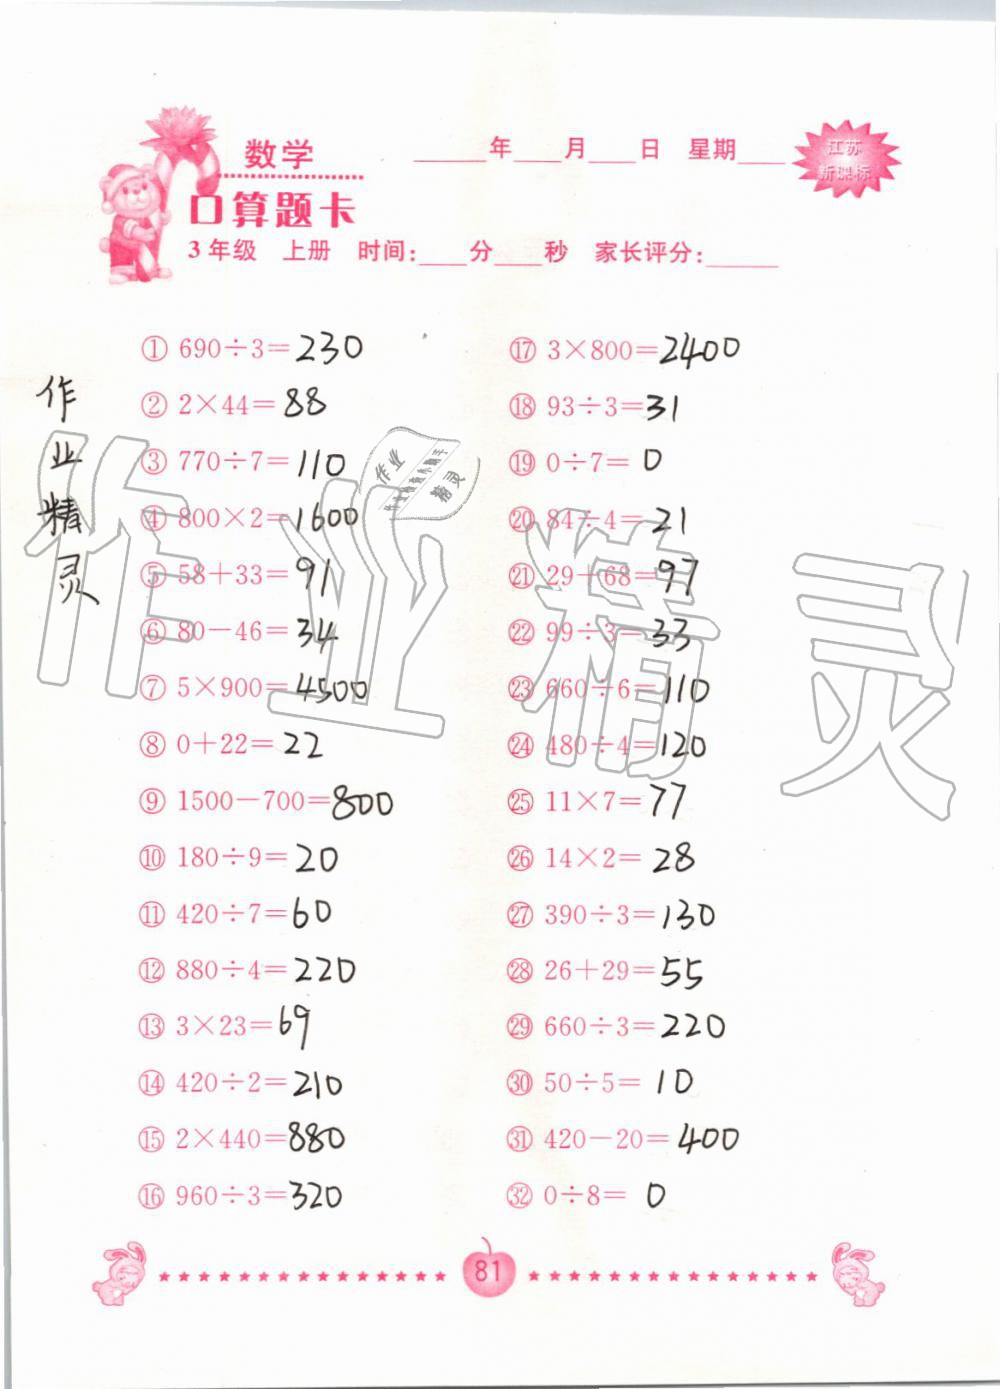 数学
____年____月____日 星期____
江苏
新课标
口算题卡
3年级 上册 时间:____分____秒 家长评分:____
① 690÷3=230
② 2×44=88
③ 770÷7=110
④ 800×2=1600
⑤ 58+33=91
⑥ 80-46=34
⑦ 5×900=4500
⑧ 0+22=22
⑨ 1500-700=800
⑩ 180÷9=20
⑪ 420÷7=60
⑫ 880÷4=220
⑬ 3×23=69
⑭ 420÷2=210
⑮ 2×440=880
⑯ 960÷3=320
⑰ 3×800=2400
⑱ 93÷3=31
⑲ 0÷7=0
⑳ 847÷4=21
㉑ 29+68=97
㉒ 99÷3=33
㉓ 660÷6=110
㉔ 480÷4=120
㉕ 11×7=77
㉖ 14×2=28
㉗ 390÷3=130
㉘ 26+29=55
㉙ 660÷3=220
㉚ 50÷5=10
㉛ 420-20=400
㉜ 0÷8=0
作业精灵
作业精灵
作业
精灵
81